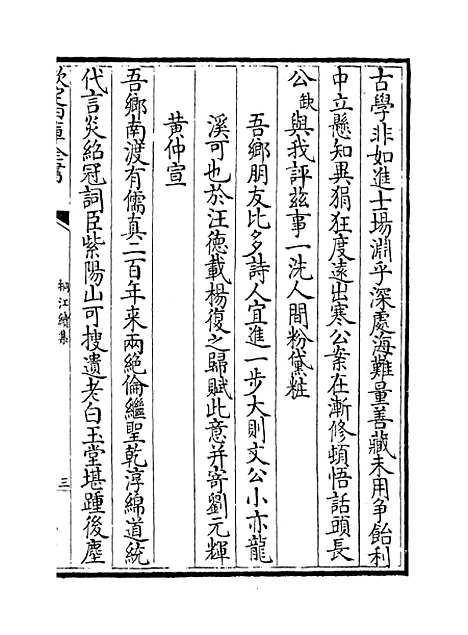 古學非如進士場淵乎深處海難量善藏未用爭餄利
中立懸知異狷狂度遠出寒公案在漸修頓悟話頭長
公缺與我評兹事一洗人間粉黛粧
吾鄉朋友比多詩人宜進一步大則文公小亦龍
溪可也於汪德載楊復之歸賦此意并寄劉元輝
黄仲宣
吾鄉南渡有儒真二百年来兩絶倫繼聖乾淳綿道統
代言炎紹冠詞臣紫陽山可搜遺老白玉堂堪踵後塵
欽定四庫全書
桐江續集
三